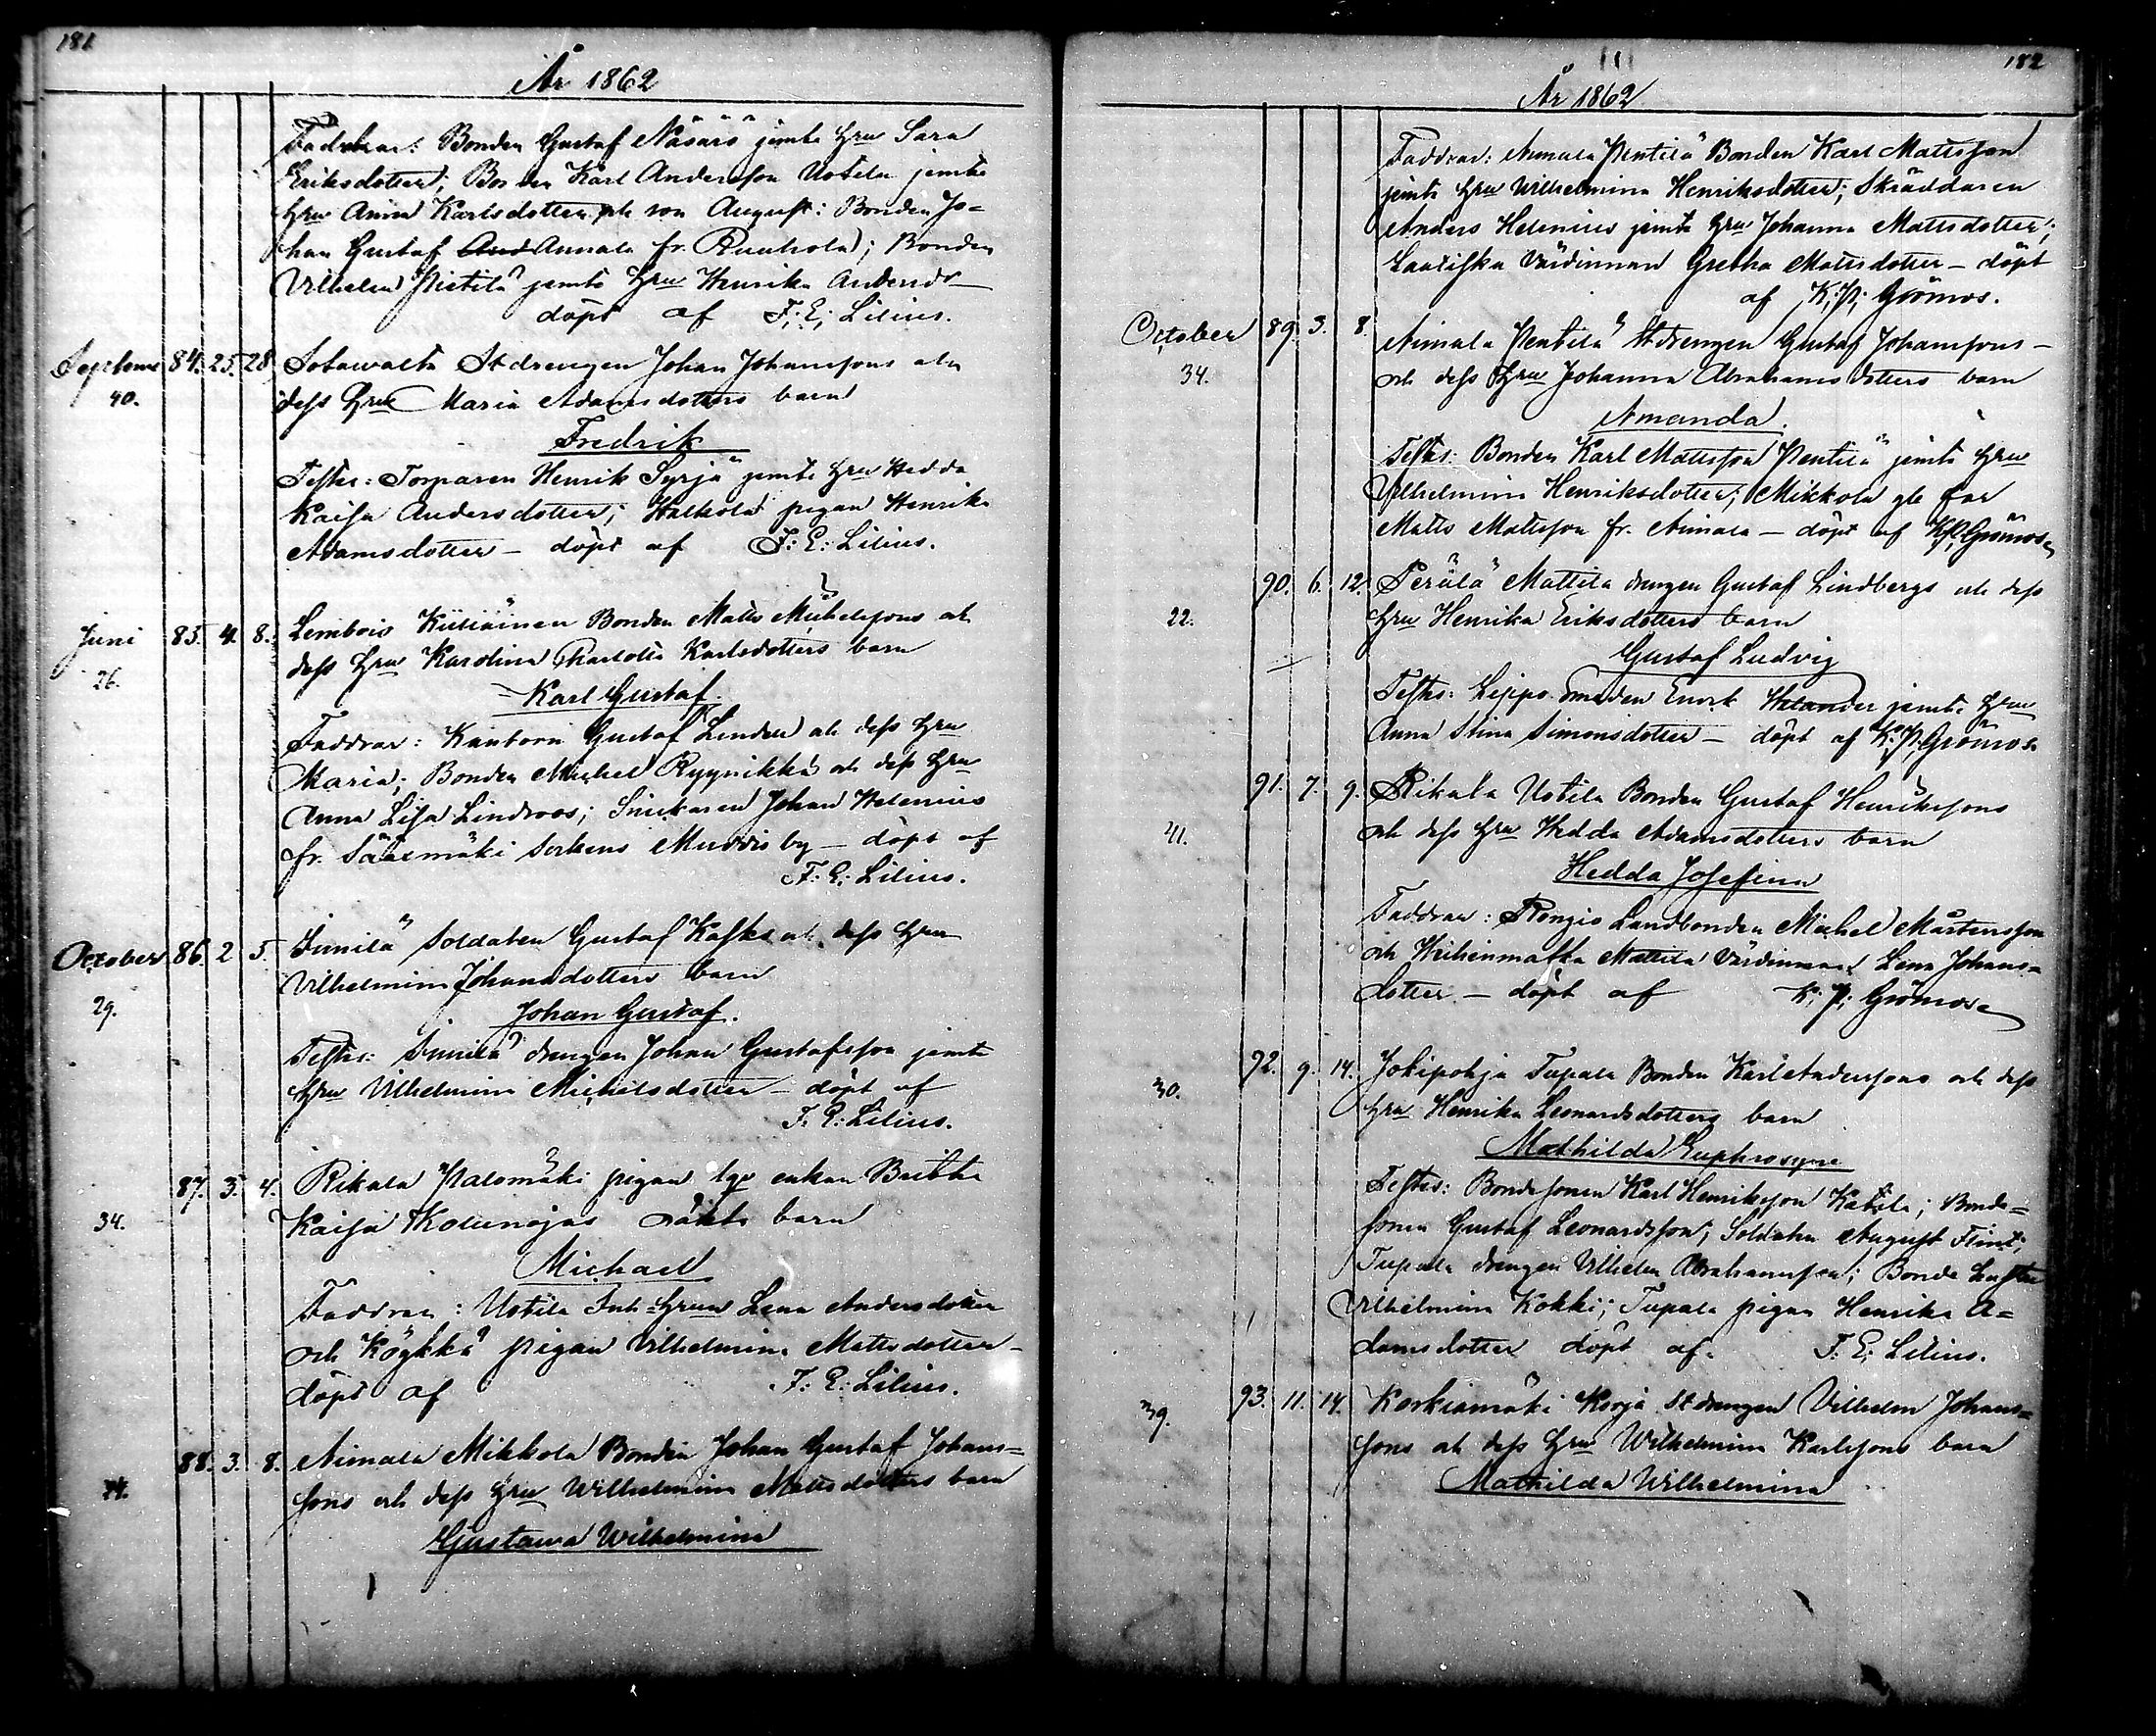 181
År 1862
Faddrar: Bonden Gustaf Näsärö jemte hru Sara
Eriksdotter; Bonden Karl Andersson Ustila jemte
hru Anna Karlsdotter och son August: Bonden Jo=
han Gustaf And Annala fr. Ruuhola); Bonden
Vilhelm Pietilä jemte hru Henrika Andersdr
döpt af F: E: Lilius.
Septembr 84. 25. 28. Sotawalta Stdrengen Johan Johanssons och
40. dess hru Maria Adamsdotters barn
Fredrik
Testes: Torparen Henrik Syrjä jemte hru Hedda
Kaisa Andersdotter; Halkola pigan Henrika
Adamsdotter – döpt af F: E: Lilius.
Juni 85. 4. 8. Lembois Kiiliäinen Bonden Matts Michelssons och
26. dess hru Karolina Charlotta Karlsdotters barn
Karl Gustaf.
Faddrar: Kantorn Gustaf Linden och dess hru
Maria; Bonden Michel Ryynikkä och dess hru
Anna Lisa Lindroos; Snickaren Johan Helenius
fr. Sääxmäki Sockens by – döpt af
F: E: Lilius.
October 86. 2. 5. Simila Soldaten Gustaf och dess hru
29. Vilhelmina Johansdotters barn
Johan Gustaf.
Testes: Simila drengen Johan Gustafsson jemte
hru Vilhelmina Michelsdotter – döpt af
F: E: Lilius.
87. 3. 4. Rikala Palomäki pigan enkan Britha
34. Kaisa oäkta barn
Michael
Faddrar: Ustila Inh hrun Lena Andersdotter
och Köykkä pigan Vilhelmina Mattsdotter –
döpt af F: E: Lilius.
88. 3. 8. Aimala Mikkola Bonden Johan Gustaf Johans=
sons och dess hru Wilhelmina Mattsdotters barn
Gustawa Wilhelmina
182
År 1862
Faddrar: Aimala Pentilä Bonden Karl Mattsson
jemte hru Wilhelmina Henriksdotter; Skräddaren
Anders Helenius jemte hru Johanna Mattsdotter;
Värdinnan Gretha Mattsdotter – döpt
af K: P: Grönroos.
October 89. 3. 8. Aimala Pentilä Stdrengen Gustaf Johanssons –
34. och dess hru Johanna Abrahamsdotters barn
Amanda.
Testes: Bonden Karl Mattsson Pentilä jemte hru
Vilhelmina Henriksdotter; Mikkola gle far
Matts Mattsson fr. Aimala – döpt af K: P: Grönroos
90. 6. 12. Perälä Mattila drengen Gustaf Lindbergs och dess
22. hru Henrika Eriksdotters barn
Gustaf Ludvig
Testes: Leppo Smeden Enock Helander jemte hru
Anna Stina Simonsdotter – döpt af K: P: Grönroos
91. 7. 9. Rikala Ustila Bonden Gustaf Henrikssons
41. och dess hru Hedda Adamsdotters barn
Hedda Josefina
Faddrar: Rengio Landbonden Michel Mårtensson
och Mattila Värdinnan Lena Johans=
dotter – döpt af K: P: Grönroos
92. 9. 14. Jokipohja Tupala Bonden Karl Anderssons och dess
30. hru Henrika Leonardsdotters barn
Mathilda Euphrosyne
Testes: Bondesonen Karl Henriksson Katila; Bonde=
sonen Gustaf Leonardsson; Soldaten August Flint;
Tupala drengen Vilhelm Abrahamsson; Bonde hustru
Vilhelmina Kokki; Tupala pigan Henrika A=
damsdotter döpt af F: E: Lilius.
93. 11. 14. Korkiamäki Korja Stdrengen Vilhelm Johans=
39. sons och dess hru Wilhelmina Karlssons barn
Mathilda Wilhelmina